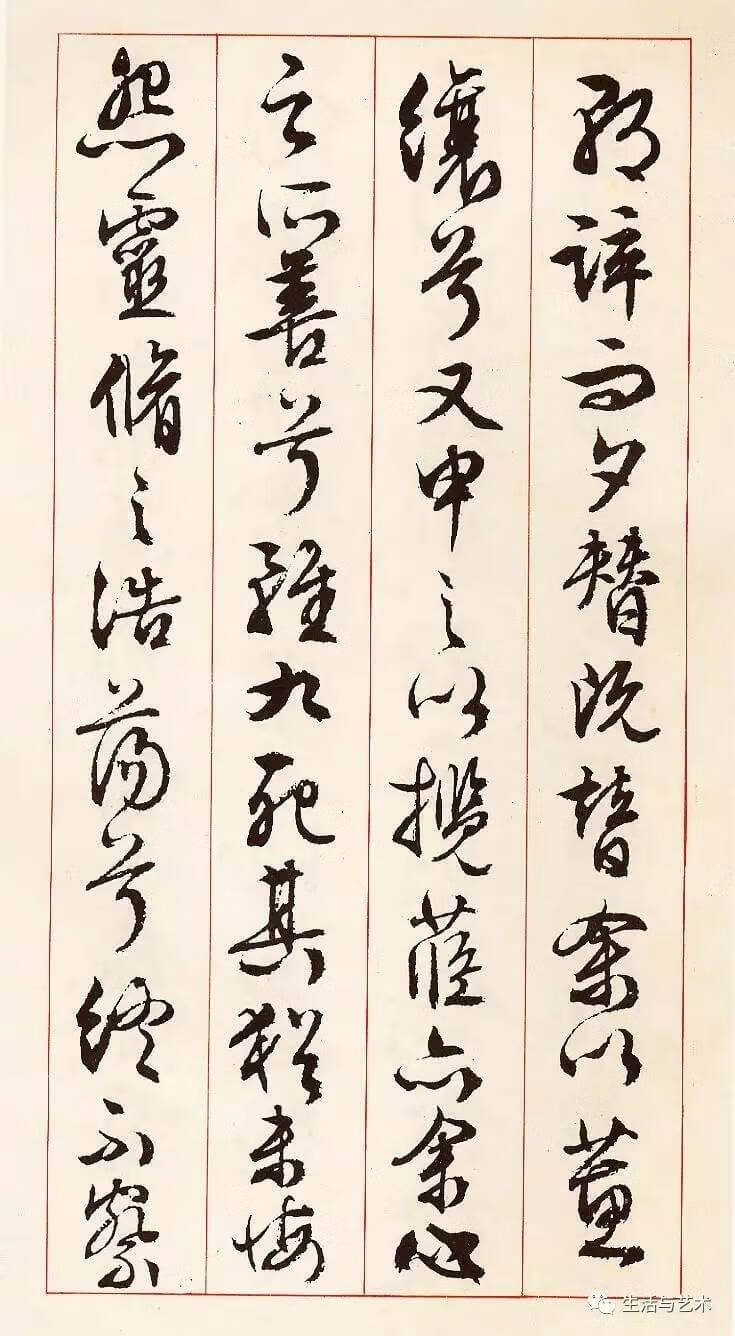 朝誶而夕替既替余以蕙
纕兮又申之以攬茝亦余心
之所善兮雖九死其猶未悔
怨靈脩之浩蕩兮終不察
生活与艺术